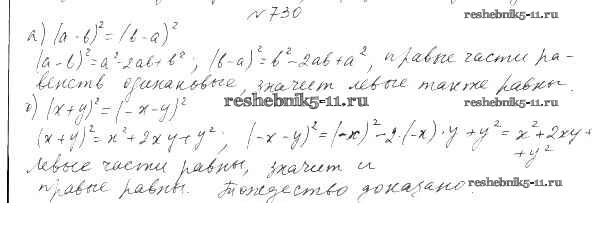 №730
reshebnik5-11.ru
а) (a-b)²=(b-a)²
(a-b)²=a²-2ab+b²; (b-a)²=b²-2ab+a², правые части ра-
венств одинаковые, значит левые также равны.
reshebnik5-11.ru
б) (x+y)²=(-x-y)²
(x+y)²=x²+2xy+y²; (-x-y)²=(-x)²-2·(-x)·y+y²=x²+2xy+
+y²
левые части равны, значит и
правые равны. Тождество доказано.
reshebnik5-11.ru